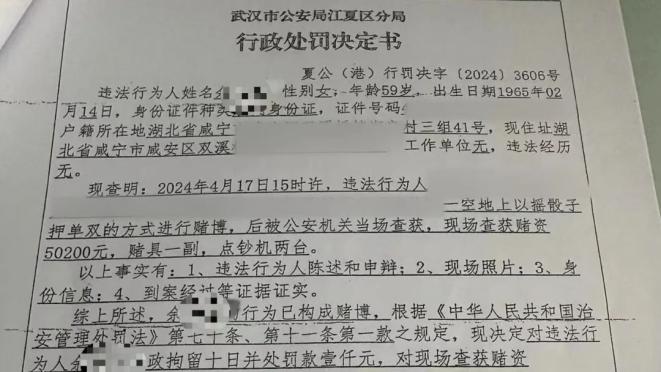 武汉市公安局江夏区分局
行政处罚决定书
夏公（港）行罚决字〔2024〕3606号
违法行为人姓名余 性别女，年龄59岁，出生日期1965年02
月14日，身份证件种类 身份证，证件号码
户籍所在地湖北省咸宁 村三组41号，现住址湖
北省咸宁市咸安区双溪 工作单位无，违法经历
无。
现查明：2024年4月17日15时许，违法行为人
一空地上以摇骰子
押单双的方式进行赌博，后被公安机关当场查获，现场查获赌资
50200元，赌具一副，点钞机两台。
以上事实有：1、违法行为人陈述和申辩；2、现场照片；3、身
份信息；4、到案经过等证据证实。
综上所述，余 行为已构成赌博，根据《中华人民共和国治
安管理处罚法》第七十条、第十一条第一款之规定，现决定对违法行
为人余 政拘留十日并处罚款壹仟元，对现场查获赌资